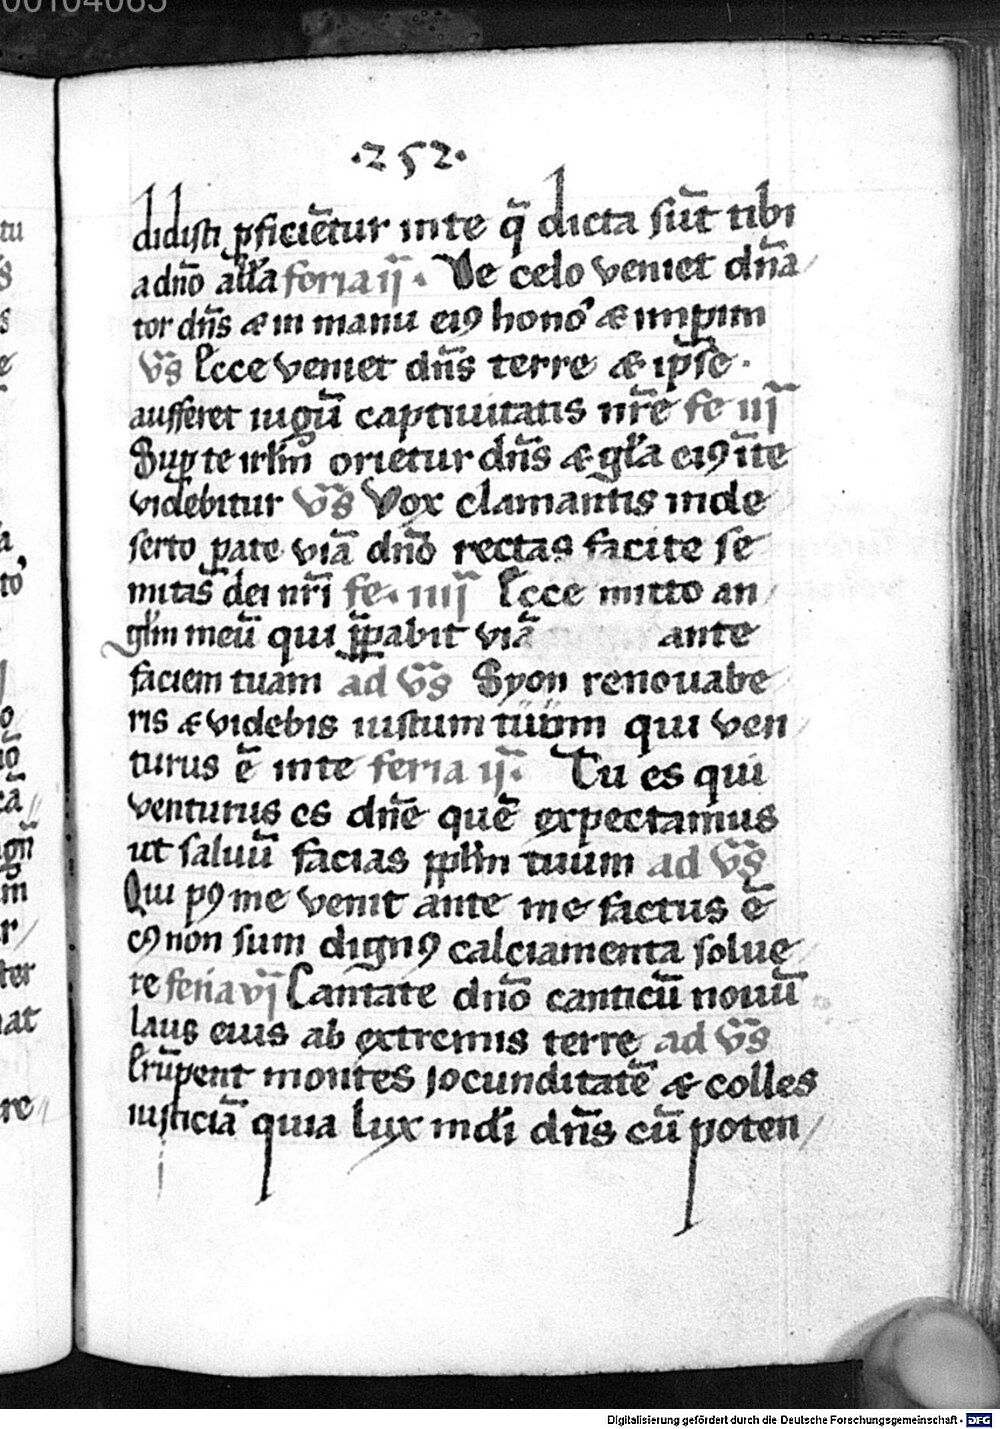 00104065
·252·
didisti ꝑficiẽtur in te q̃ dicta sũt tibi
a dnõ all̃a feria ij̃ · De celo veniet dña/
tor dñs & in manu eiꝰ honõ & imꝑim
ṽs Ecce veniet dñs terre & ip̃se ·
aufferet iugũ captiuitatis nr̃e fe iij̃
Suꝑ te irl̃m orietur dñs & gl̃a eiꝰ ĩ te
videbitur ṽs Vox clamantis in de
serto ꝑate viã dnõ rectas facite se
mitas dei nr̃i fe · iiij̃ Ecce mitto an/
gl̃m meũ qui p̃pabit viã ante
faciem tuam ad ṽs Syon renouabe
ris & videbis iustum tuum qui ven/
turus ẽ in te feria ij̃ · Tu es qui
venturus es dñe quẽ expectamus
ut saluũ facias ppl̃m tuum ad ṽs
Qui pꝰ me venit ante me factus ẽ
cꝰ non sum dignꝰ calciamenta solue/
re feria vj̃ Cantate dnõ canticũ nouũ
laus eius ab extremis terre ad ṽs
Erũpent montes iocunditatẽ & colles
iusticiã quia lux mdĩ dñs cũ poten/
Digitalisierung gefördert durch die Deutsche Forschungsgemeinschaft - DFG